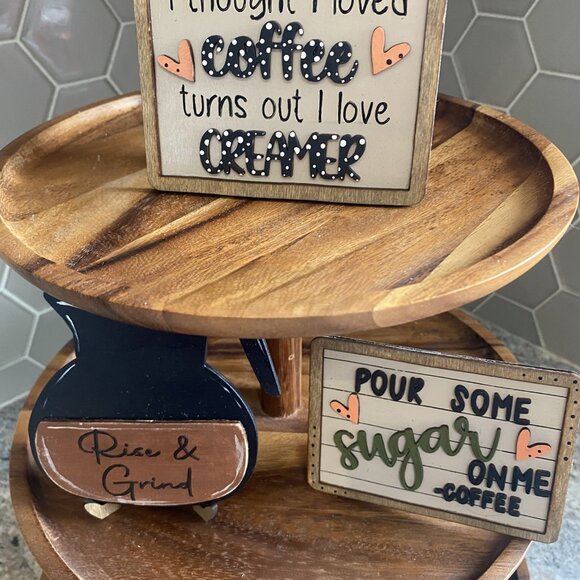 I thought I loved
coffee
turns out I love
CREAMER
Rise &
Grind
POUR SOME
sugar
ON ME
-COFFEE